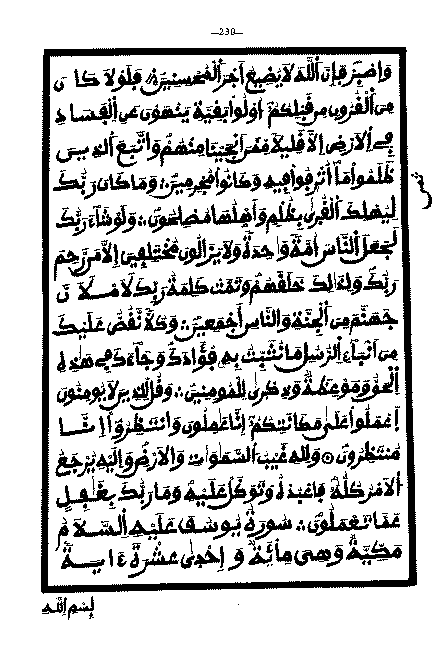 —230—
وَاصْبِرْ فَإِنَّ اَللَّهَ لَا يُضِيعُ أَجْرَ اَلْمُحْسِنِينَ فَلَوْلَا كَانَ
مِنَ اَلْقُرُونِ مِن قَبْلِكُمْ أُوْلُواْ بَقِيَّةٍ يَنْهَوْنَ عَنِ اِلْفَسَادِ
فِي اِلَارْضِ إِلَّا قَلِيلًا مِّمَّنَ اَنجَيْنَا مِنْهُمْ وَاتَّبَعَ اَلذِينَ
ظَلَمُواْ مَا أُتْرِفُواْ فِيهِ وَكَانُواْ مُجْرِمِينَ وَمَا كَانَ رَبُّكَ
لِيُهْلِكَ اَلْقُرَى بِظُلْمٍ وَأَهْلُهَا مُصْلِحُونَ وَلَوْ شَاءَ رَبُّكَ
لَجَعَلَ اَلنَّاسَ أُمَّةً وَاحِدَةً وَلَا يَزَالُونَ مُخْتَلِفِينَ إِلَّا مَن رَّحِمَ
رَبُّكَ وَلِذَالِكَ خَلَقَهُمْ وَتَمَّتْ كَلِمَةُ رَبِّكَ لَأَمْلَأَنَّ
جَهَنَّمَ مِنَ اَلْجِنَّةِ وَالنَّاسِ أَجْمَعِينَ وَكُلًّا نَّقُصُّ عَلَيْكَ
مِنَ اَنبَاءِ اِلرُّسُلِ مَا نُثَبِّتُ بِهِ فُؤَادَكَ وَجَاءَكَ فِي هَذِهِ
اِلْحَقُّ وَمَوْعِظَةٌ وَذِكْرَى لِلْمُومِنِينَ وَقُل لِّلذِينَ لَا يُومِنُونَ
اَعْمَلُواْ عَلَى مَكَانَتِكُمُ إِنَّا عَامِلُونَ وَانتَظِرُواْ إِنَّا
مُنتَظِرُونَ وَلِلهِ غَيْبُ السَّمَاوَاتِ وَالَارْضِ وَإِلَيْهِ يُرْجَعُ
اَلَامْرُ كُلُّهُ فَاعْبُدْهُ وَتَوَكَّلْ عَلَيْهِ وَمَا رَبُّكَ بِغَافِلٍ
عَمَّا تَعْمَلُونَ سُورَةُ يُوسُفَ عَلَيْهِ السَّلَامُ
مَكِّيَّةٌ وَهِيَ مِائَةٌ وَإِحْدَى عَشْرَةَ ءَايَةً
ثمن
بِسْمِ اللَّهِ